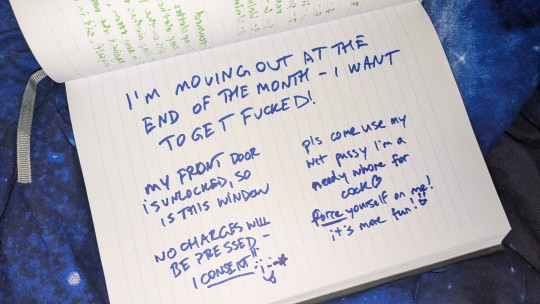 I'M MOVING OUT AT THE
END OF THE MONTH - I WANT
TO GET FUCKED!
MY FRONT DOOR
IS UNLOCKED, SO
IS THIS WINDOW
NO CHARGES WILL
BE PRESSED -
I CONSENT!!
pls come use my
wet pussy I'm a
needy whore for
cock
force yourself on me!
it's more fun!